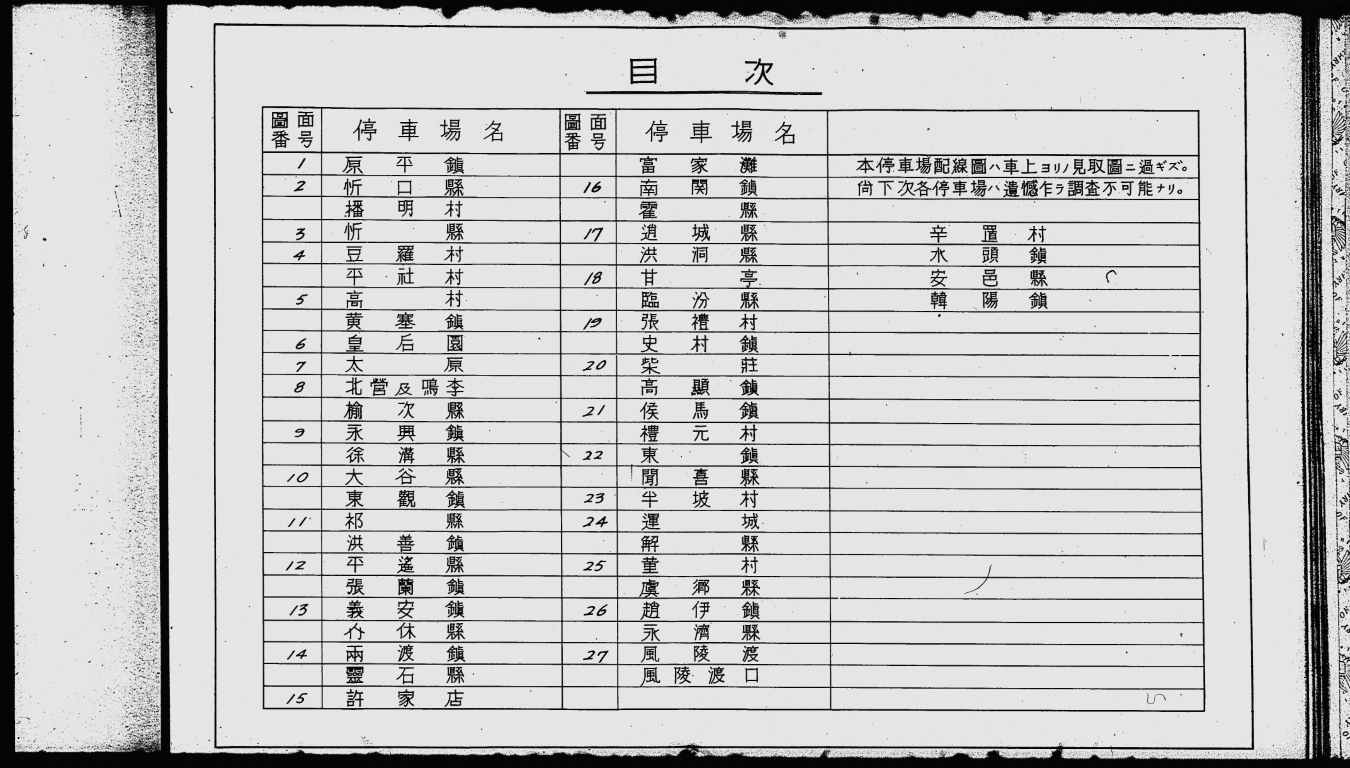 目次
圖面番号 停車場名 圖面番号 停車場名
1 原平鎭 富家灘 本停車場配線圖ハ車上ヨリノ見取圖ニ過ギズ。
2 忻口縣 16 南関鎭 尙下次各停車場ハ遺憾乍ラ調査不可能ナリ。
播明村 霍縣
3 忻縣 17 逍城縣 辛置村
4 豆羅村 洪洞縣 水頭鎭
平社村 18 甘亭 安邑縣
5 高村 臨汾縣 韓陽鎭
黄塞鎭 19 張禮村
6 皇后園 史村鎭
7 太原 20 柴莊
8 北營及鳴李 高顯鎭
榆次縣 21 侯馬鎭
9 永興鎭 禮元村
徐溝縣 22 東鎭
10 大谷縣 聞喜縣
東觀鎭 23 半坡村
11 祁縣 24 運城
洪善鎭 解縣
12 平遙縣 25 董村
張蘭鎭 虞鄉縣
13 義安鎭 26 趙伊鎭
介休縣 永濟縣
14 兩渡鎭 27 風陵渡
靈石縣 風陵渡口
15 許家店